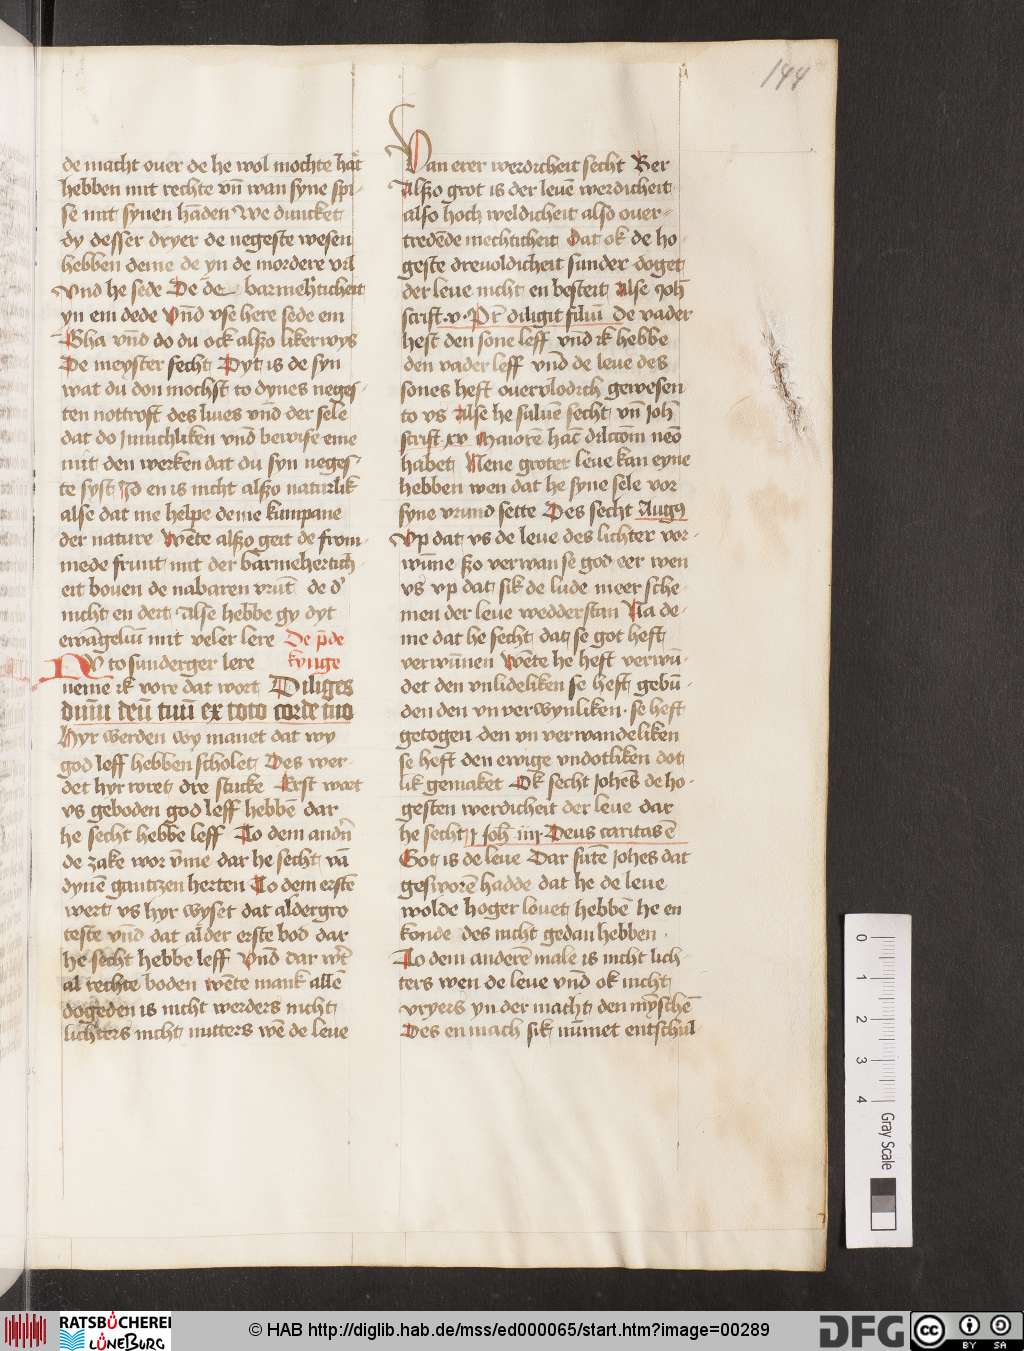 144
de macht ouer de he wol mochte hat
hebben mit rechte vn̄ wan syne spi-
se mit synen hāden We duncket
dy desser dryer de negeste wesen
hebben deme de yn de mordere vil
Vnd he sede De de barmehʼticheit
yn em dede Vn̄d vse here sede em
Gha vn̄d do du ock alßo likerwys
De meyster secht Dyt is de syn
wat du don mochst to dynes neges-
ten nottroft des liues vn̄d der sele
dat do ynnichliken vn̄d bewise eme
mit den werken dat du syn neges-
te syst Id en is nicht alßo naturlik
alse dat me helpe deme kumpane
der nature Wēte alßo geit de from-
mede frunt mit der barmehertich-
eit bouen de nabaren vrūt de dʼ
nicht en deit Alse hebbe gy dyt
ewāgeliū mit veler lere De p̄de
NV to sunderger lere kynge
neme ik vore dat wort Diliges
dn̄m deū tuū ex toto corde tuo
Hyr werden wy manet dat wy
god leff hebben scholet Des wer-
det hyr roret dre stucke Erst wort
vs geboden god leff hebbē dar
he secht hebbe leff To dem andn̄
de zake wor v̄me dar he secht vā
dynē gantzen herten To dem erstē
wert vs hyr wyset dat aldergro
teste vn̄d dat alder erste bod dar
he secht hebbe leff Vn̄d dar wʼt
al rechte boden wēte mank allē
dogeden is nicht werders nicht
lichters nicht nutters wē de leue
Van erer werdicheit secht Ber
Alßo grot is der leuē werdicheit
also hoch weldicheit also ouer-
tredēde mechticheit Dat ok de ho-
geste dreuoldicheit sunder doget
der leue nicht en besteit Alse Joh̄
scrift v. Pr̄ diligit filiū De vader
hest den sone leff vn̄d ik hebbe
den vader leff vn̄d de leue des
sones heft ouervlodich gewesen
to vs Alse he suluē secht vn̄ Joh̄
scrift xv Maiorē hac̄ dilc̄om neō
habet Nene groter leue kan eyne
hebben wen dat he syne sele vor
syne vrund sette Des secht Augꝰ
Vp dat vs de leue des lichter vor-
wūne ßo verwan se god eer wen
vs vp dat sik de lude meer sche-
men der leue wedderstan Na de-
me dat he secht dat se got heft
verwūnen Wēte he heft verwū-
det den vnlideliken se heft gebū-
den den vnverwynliken. se heft
getogen den vn verwandeliken
se heft den ewige vndotliken dot
lik gemaket Ok secht Johēs de ho-
gesten werdicheit der leue dar
he secht j Joh̄ iiij Deus caritas ē
Got is de leue Dar sūte Johēs dat
gesworē hadde dat he de leue
wolde hoger louet hebbē he en
konde des nicht gedan hebben.
To dem anderē male is nicht lich-
ters wen de leue vn̄d ok nicht
vryers yn der macht den mȳschē
Des en mach sik nūmet entschul-
0 1 2 3 4
Gray Scale
RATSBÜCHEREI
LÜNEBURG
© HAB http://diglib.hab.de/mss/ed000065/start.htm?image=00289
DFG
cc BY SA